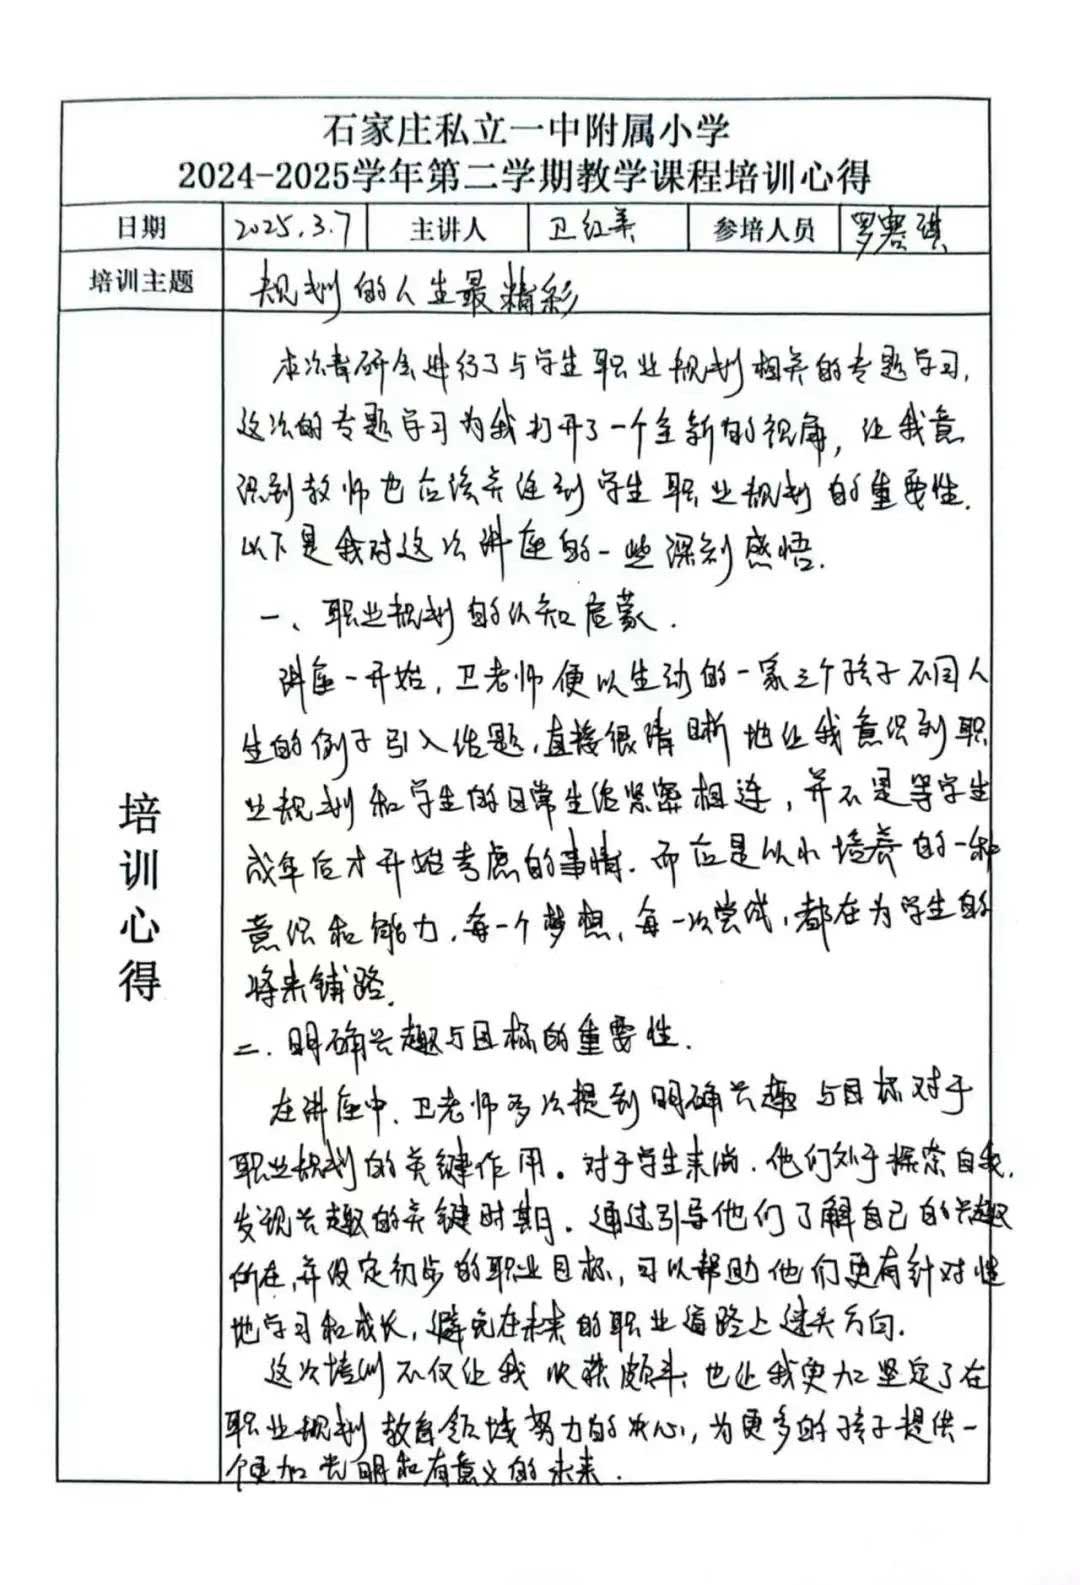 石家庄私立一中附属小学
2024-2025学年第二学期教学课程培训心得
日期 2025.3.7 主讲人 卫红美 参培人员 罗赛琪
培训主题 规划的人生最精彩
培训心得
本次教研会进行了与学生职业规划相关的专题学习,
这次的专题学习为我打开了一个全新的视角, 让我意
识到教师也应该关注到学生职业规划的重要性.
以下是我对这次讲座的一些深刻感悟.
一、职业规划的认知启蒙.
讲座一开始, 卫老师便以生动的一家三个孩子不同人
生的例子引入话题, 直接很清晰地让我意识到职
业规划和学生的日常生活紧密相连, 并不是等学生
成年后才开始考虑的事情. 而应是从小培养的一种
意识和能力, 每一个梦想, 每一次尝试, 都在为学生的
将来铺路.
二. 明确兴趣与目标的重要性.
在讲座中, 卫老师多次提到明确兴趣与目标对于
职业规划的关键作用。对于学生来说. 他们处于探索自我,
发现兴趣的关键时期. 通过引导他们了解自己的兴趣
所在, 并设定初步的职业目标, 可以帮助他们更有针对性
地学习和成长, 避免在未来的职业道路上迷失方向.
这次培训不仅让我收获颇丰, 也让我更加坚定了在
职业规划教育领域努力的决心, 为更多的孩子提供一
个更加光明和有意义的未来.